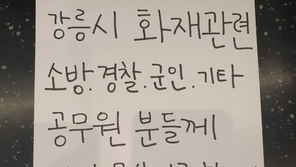 강릉시 화재관련
소방.경찰.군인.기타
공무원 분들께